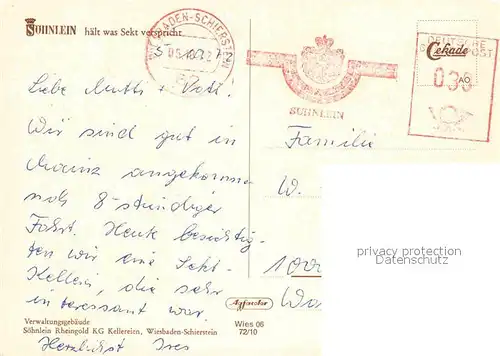 SÖHNLEIN hält was Sekt verspricht
WIESBADEN-SCHIERSTEIN
SÖHNLEIN
DEUTSCHE
BUNDESPOST
Cekade
030
Liebe Mutti + Vati.
Wir sind gut in
Mainz angekommen
nach 8-stündiger
Fahrt. Heute besichtig-
ten wir eine Sekt-
Kellerei, die sehr
interessant war.
Herzlichst
Familie
W.
100
privacy protection
Datenschutz
Agfacolor
Verwaltungsgebäude
Söhnlein Rheingold KG Kellereien, Wiesbaden-Schierstein
Wies 06
72/10